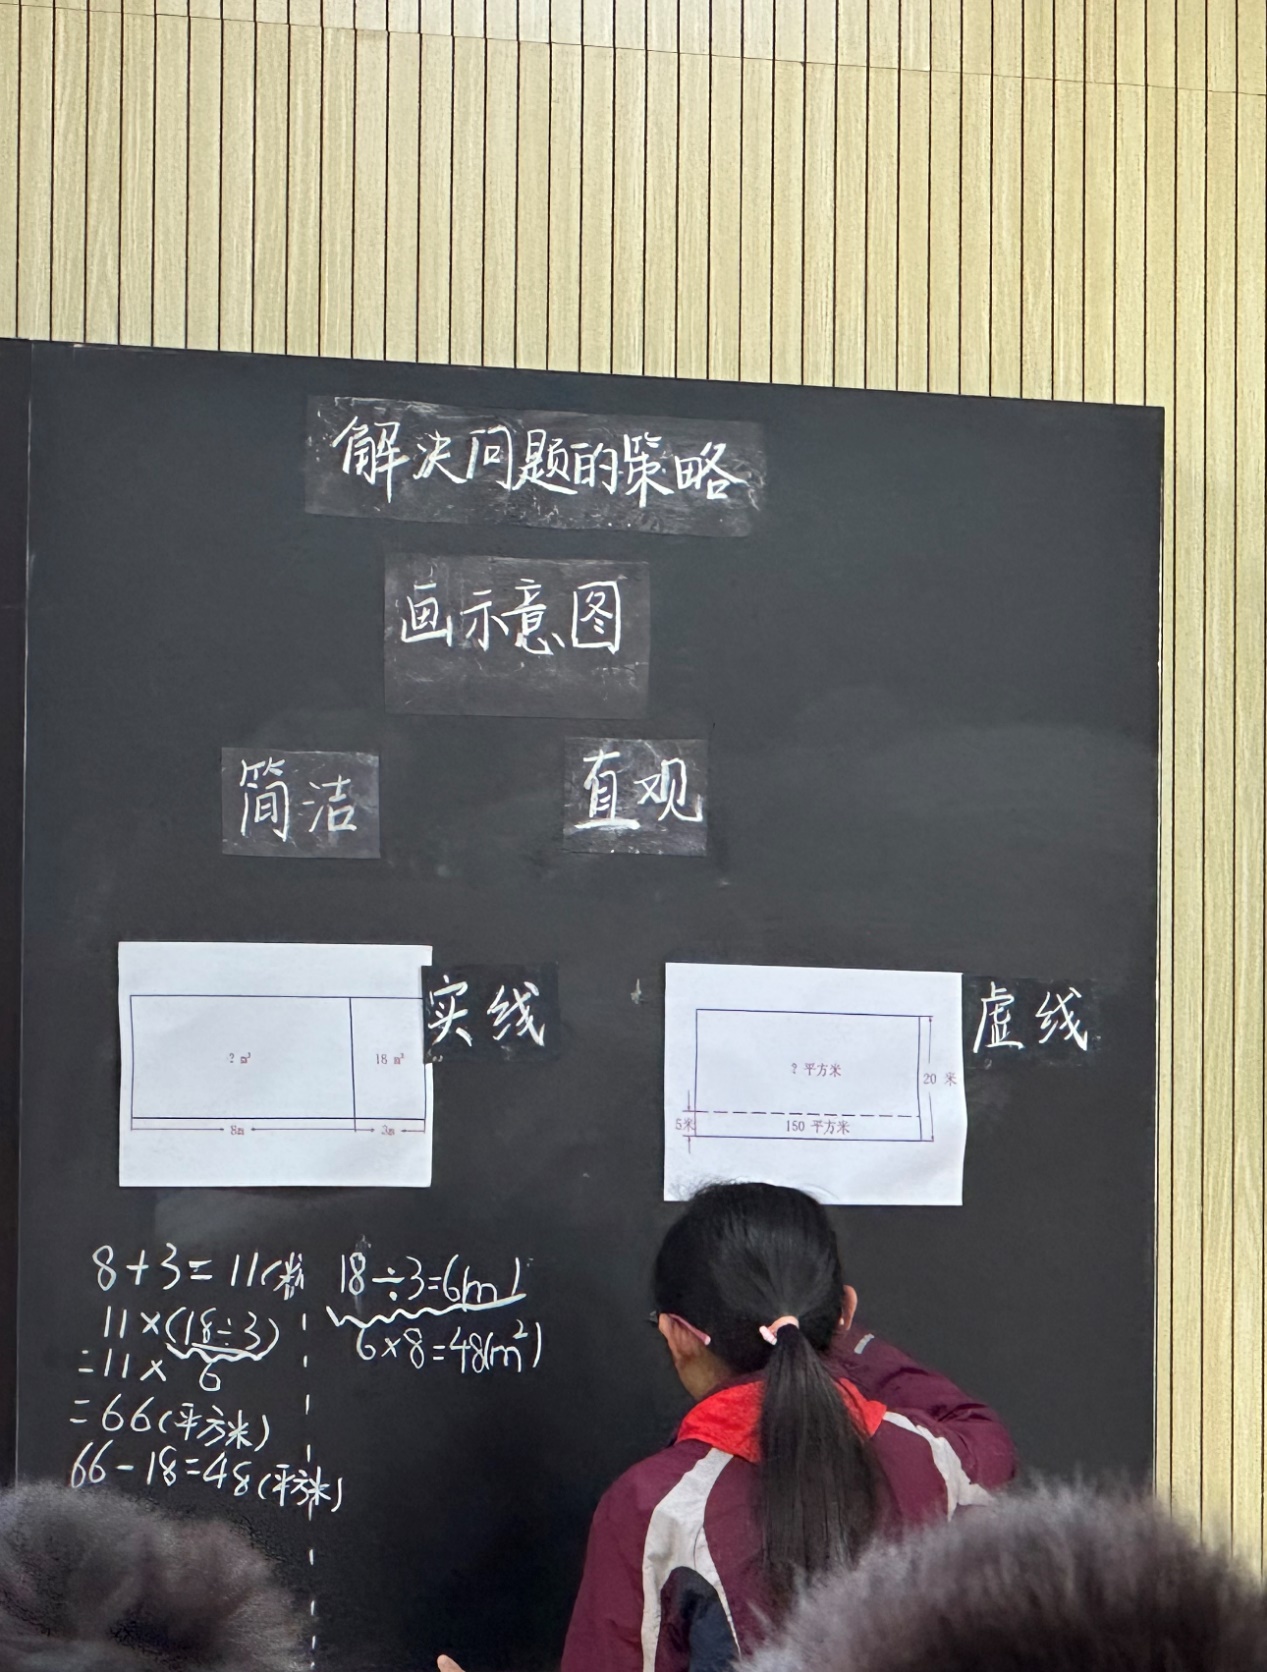 解决问题的策略
画示意图
简洁 直观
实线 虚线
? m²
18 m²
8m
3m
? 平方米
20 米
5米
150 平方米
8+3=11(米)
11×(18÷3)
=11×6
=66(平方米)
66-18=48(平方米)
18÷3=6(m)
6×8=48(m²)